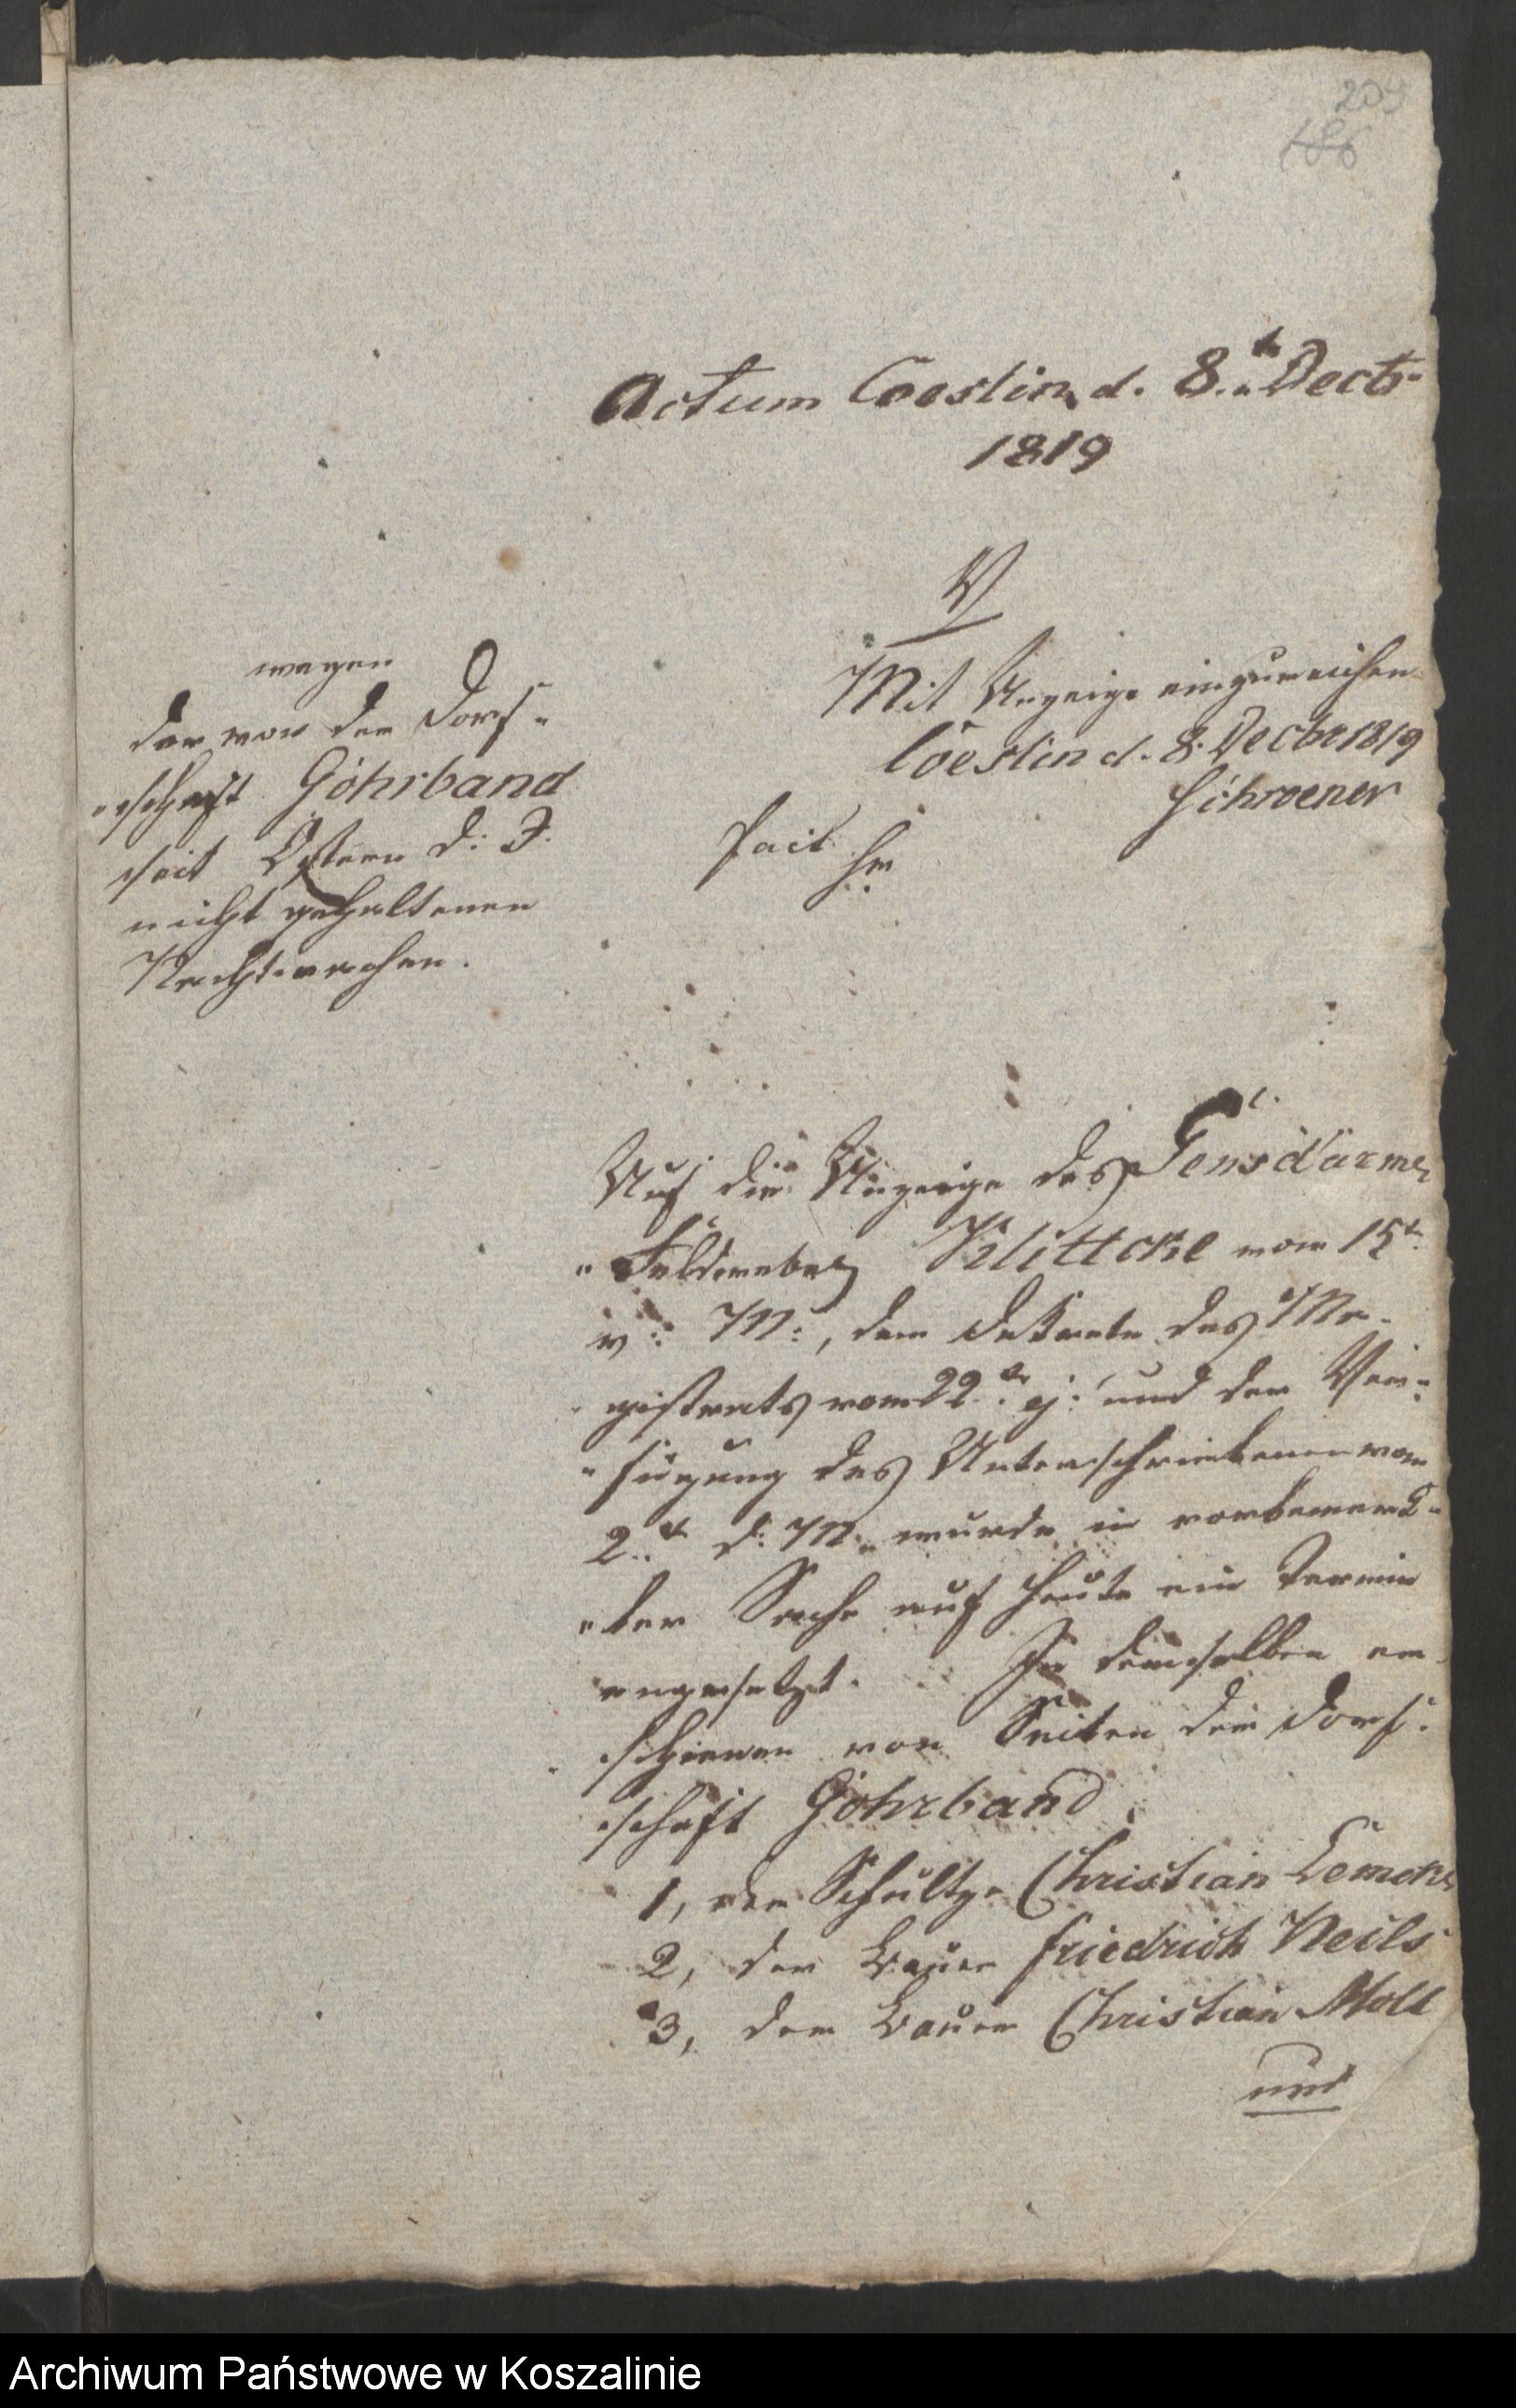 209
186
Actum Coeslin d. 8.ten Decbr
1819
V
Mit Anzeige einzureichen
Cöeslin d. 8. Decbr 1819
Schroener
fact
wegen
der von der Dorf-
"schaft Göhrband
seit Ostern d: J.
nicht gehaltenen
Nachtwachen.
Auf die Anzeige des Gensd'armen
"Feldwebel Klittcke vom 15ten
v: M:, dem Dekrete des Ma-
gistrats vom 22.ten ej: und der Ver-
"fügung des Unterschriebenen vom
2.ten d: M. wurde in vorbemerk-
"ter Sache auf heute ein Termin
angesetzt. In demselben er-
schienen von Seiten der Dorf-
schaft Göhrband
1, der Schultze Christian Lemcke
2, der Bauer Friedrich Neils
3, der Bauer Christian Moll
und
Archiwum Państwowe w Koszalinie